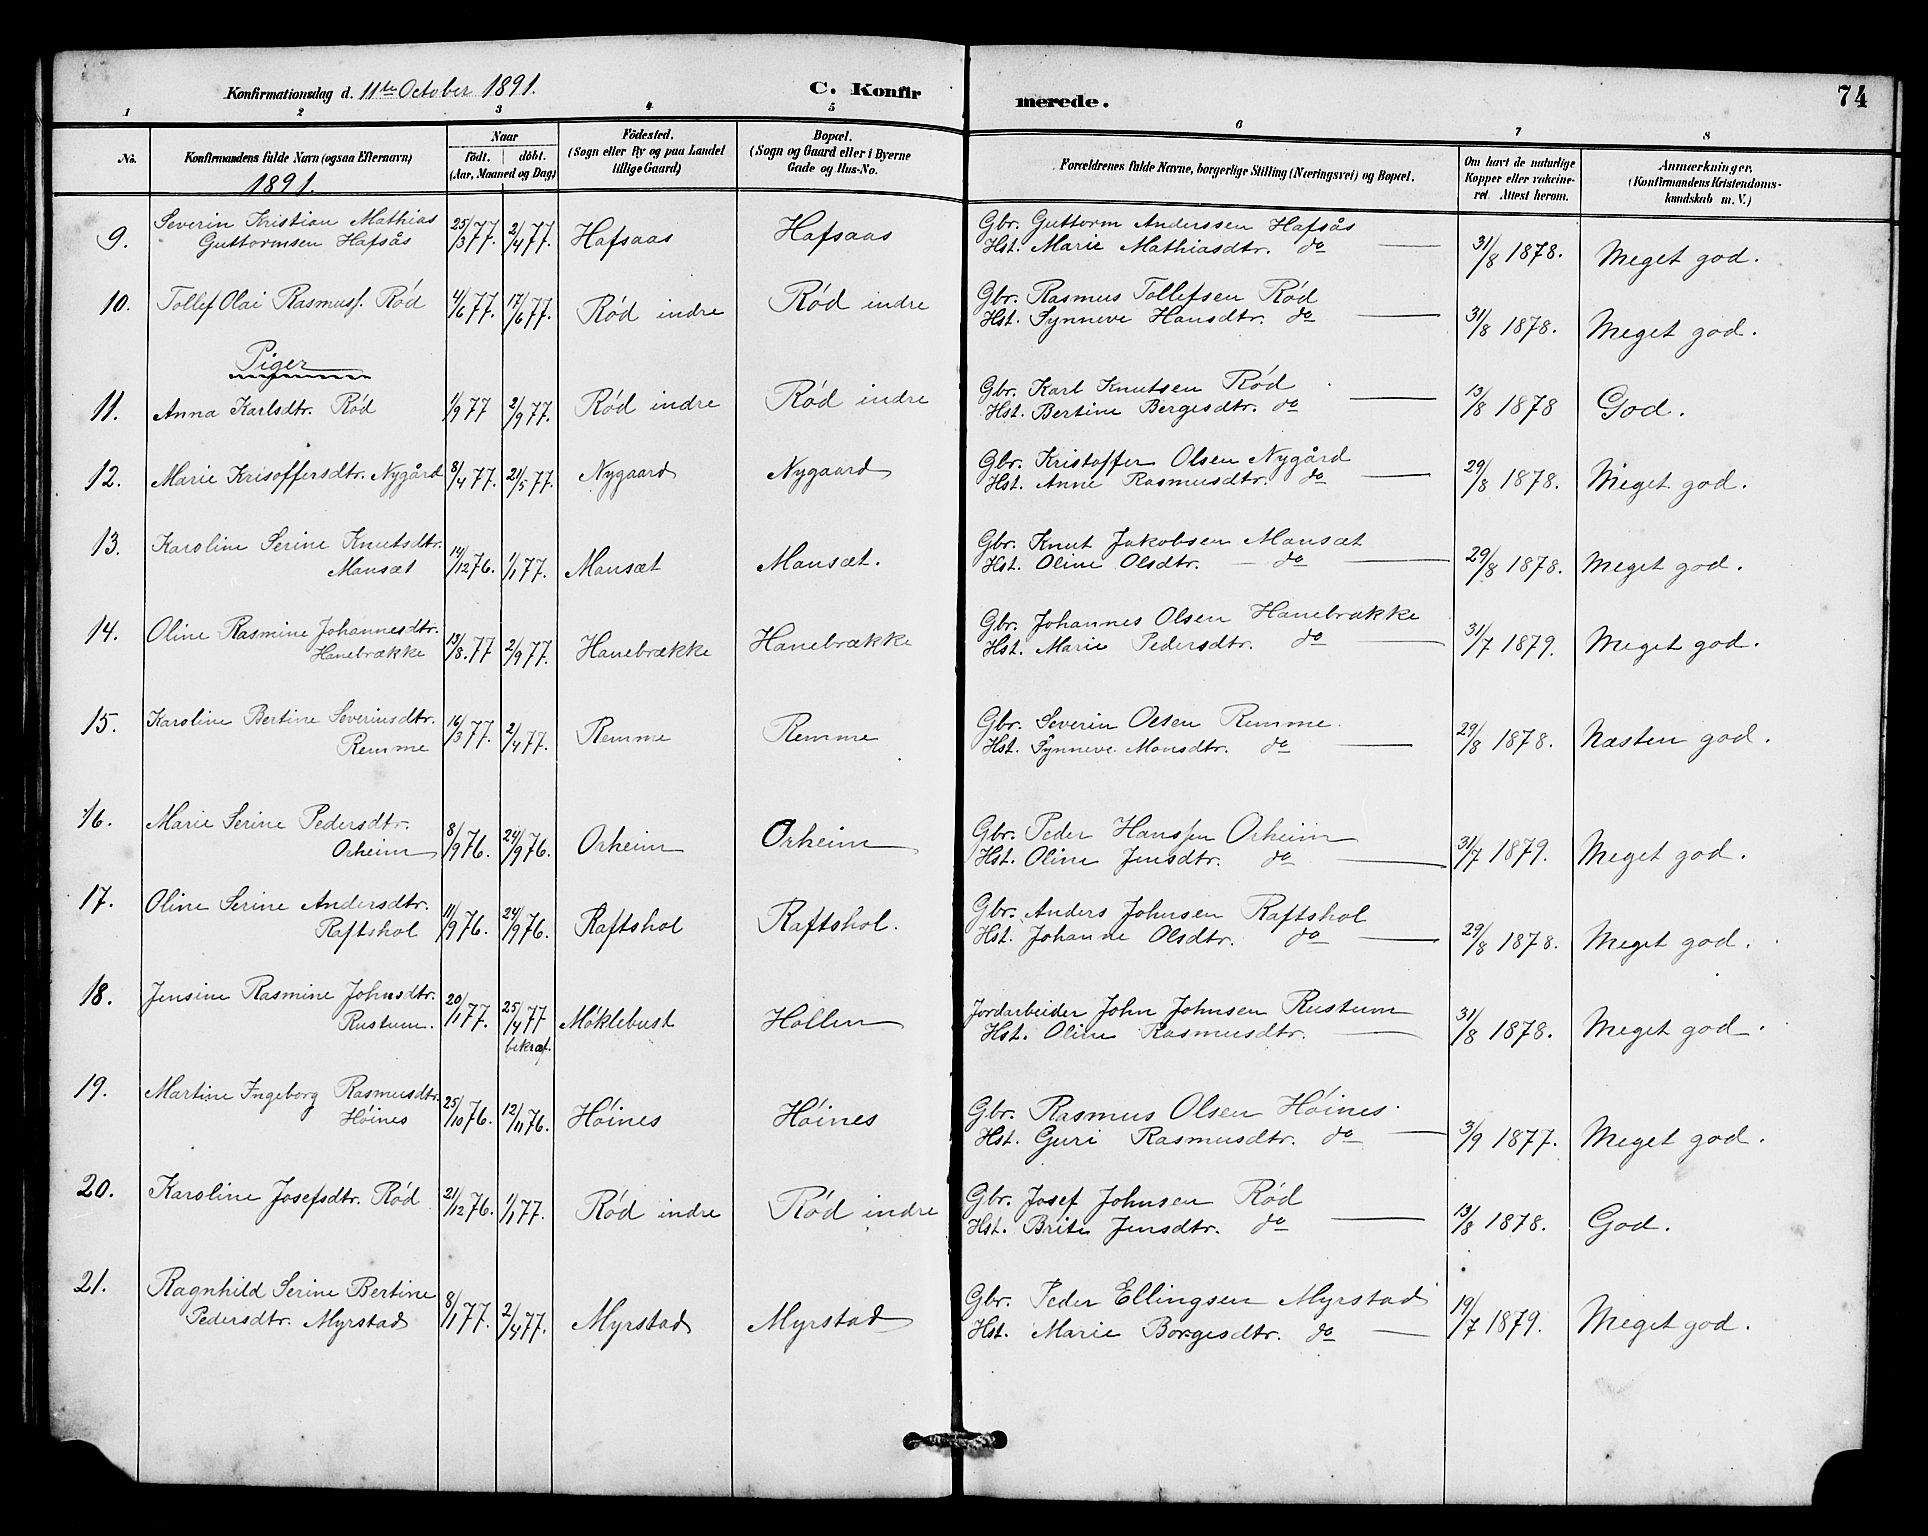 Konfirmationsdag d. 11te October 1891.
C. Konfirmerede.
74
1 2 3 4 5 6 7 8
No. Konfirmandens fulde Navn (ogsaa Efternavn) Naar födt. döbt. (Aar, Maaned og Dag) Födested. (Sogn eller By og paa Landet tillige Gaard) Bopæl. (Sogn og Gaard eller i Byerne Gade og Hus-No. Forældrenes fulde Navne, borgerlige Stilling (Næringsvei) og Bopæl. Om havt de naturlige Kopper eller vakcineret Attest herom. Anmærkninger. (Konfirmandens Kristendomskundskab m. V.)
1891.
9. Severin Kristian Mathias Guttormsen Hafsås 25/3 77. 2/4 77. Hafsaas Hafsaas Gbr. Guttorm Anderssen Hafsås
Hst. Marie Mathiasdtr. do 31/8 1878. Meget god.
10. Tollef Olai Rasmuss. Ród 4/6 77. 17/6 77. Ród indre Ród indre Gbr. Rasmus Tollefsen Ród
Hst. Synneve Hansdtr. do 31/8 1878. Meget god.
Piger
11. Anna Karlsdtr. Ród 1/9 77 2/9 77. Ród indre Ród indre Gbr. Karl Knutsen Ród
Hst. Bertine Bergesdtr. do 13/8 1878 God.
12. Marie Krisoffersdtr. Nygård 8/4 77. 21/5 77. Nygaard Nygaard Gbr. Kristoffer Olsen Nygård
Hst. Anne Rasmusdtr. do 29/8 1878. Meget god.
13. Karoline Serine Knutsdtr. Mansæt 14/12 76. 1/1 77. Mansæt Mansæt. Gbr. Knut Jakobsen Mansæt
Hst. Oline Olsdtr. do 29/8 1878. Meget god.
14. Oline Rasmine Johannesdtr. Hanebrække 13/8. 77 2/9 77. Hanebrække Hanebrække Gbr. Johannes Olsen Hanebrække
Hst. Marie Pedersdtr. do 31/7 1879. Meget god.
15. Karoline Bertine Severinsdtr. Remme 16/3 77. 2/4 77. Remme Remme Gbr. Severin Olsen Remme.
Hst. Synneve Monsdtr. do 29/8 1878. Næsten god.
16. Marie Serine Pedersdtr. Orheim 8/9 76. 24/9 76. Orheim Orheim Gbr. Peder Hanssen Orheim
Hst. Oline Jensdtr. do 31/7 1879. Meget god.
17. Oline Serine Andersdtr. Raftshol 11/9 76. 24/9 76. Raftshol Raftshol. Gbr. Anders Johnsen Raftshol
Hst. Johanne Olsdtr. do 29/8 1878. Meget god.
18. Jensine Rasmine Johnsdtr. Rustum. 20/1 77. 25/4 77 bekræf. Móklebust Hollen Jordarbeider John Johnsen Rustum
Hst. Oline Rasmusdtr. 31/8 1878. Meget god.
19. Martine Ingeborg Rasmusdtr. Hóines 25/10 76. 12/11 76. Hóines Hóines Gbr. Rasmus Olsen Hóines.
Hst. Guri Rasmusdtr. do 3/9 1877. Meget god.
20. Karoline Josefsdtr. Ród 21/12 76. 1/1 77. Ród indre Ród indre Gbr. Josef Johnsen Ród
Hst. Brite Jensdtr. do 13/8 1878. God.
21. Ragnhild Serine Bertine Pedersdtr. Myrstad 8/1 77. 2/4 77. Myrstad Myrstad Gbr. Peder Ellingsen Myrstad
Hst. Marie Borgesdtr. do 19/7 1879. Meget god.